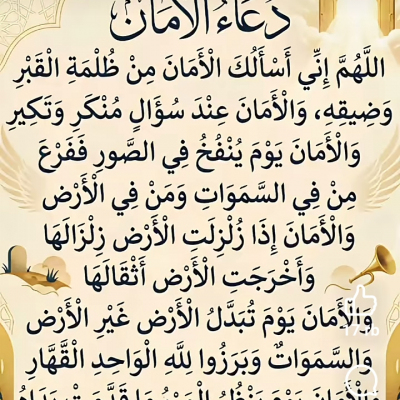 دُعَاءُ الْأَمَانِ
اللَّهُمَّ إِنِّي أَسْأَلُكَ الْأَمَانَ مِنْ ظُلْمَةِ الْقَبْرِ
وَضِيقِهِ، وَالْأَمَانَ عِنْدَ سُؤَالِ مُنْكَرِ وَنَكِيرِ
وَالْأَمَانَ يَوْمَ يُنْفُخُ فِي الصَّورِ فَفَرْعَ
مِنْ فِي السَّمَوَاتِ وَمَنْ فِي الْأَرْضِ
وَالْأَمَانَ إِذَا زُلْزِلَتِ الْأَرْضِ زِلْزَالَهَا
وَأَخْرَجَتِ الْأَرْضِ أَثْقَالَهَا
وَالْأَمَانَ يَوْمَ تُبَدَّلُ الْأَرْضِ غَيْرِ الْأَرْضِ
وَالسَّمَوَاتُ وَبَرَزُوا لِلَّهِ الْوَاحِدِ الْقَهَّارِ
وَالْأَمَانَ يَوْمَ يَنْظُرُ الْمَرْءُ مَا قَدَّمَتْ يَدَاهُ